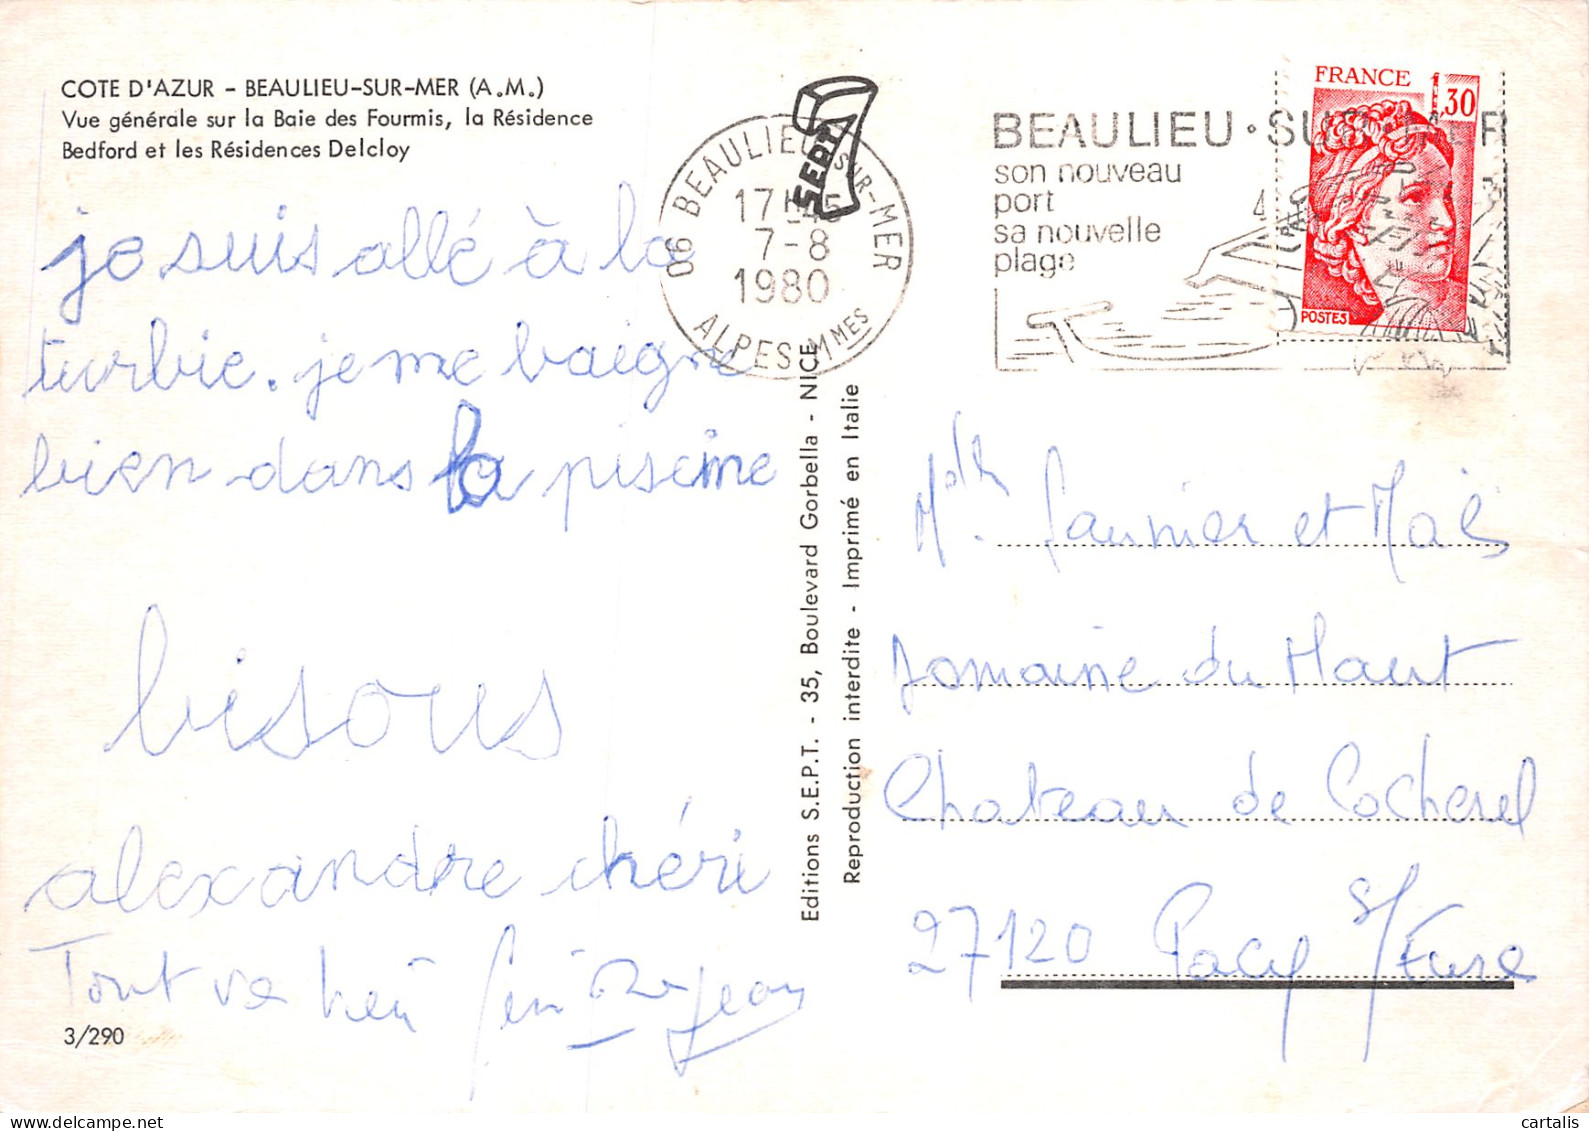 COTE D'AZUR - BEAULIEU-SUR-MER (A.M.)
Vue générale sur la Baie des Fourmis, la Résidence
Bedford et les Résidences Delcloy
je suis allé à la
turbie. je me baigne
bien dans la piscine
bisous
alexandre chéri
Tout va
3/290
Editions S.E.P.T. - 35, Boulevard Gorbella - NICE
Reproduction interdite - Imprimé en Italie
SEPT
06 BEAULIEU SUR-MER
17H45
7-8
1980
ALPES MMES
BEAULIEU·SUR MER
son nouveau
port
sa nouvelle
plage
FRANCE 1,30
POSTES
et
Domaine du Haut
Chateau de Cocherel
27120 Pacy s/Eure
cartalis